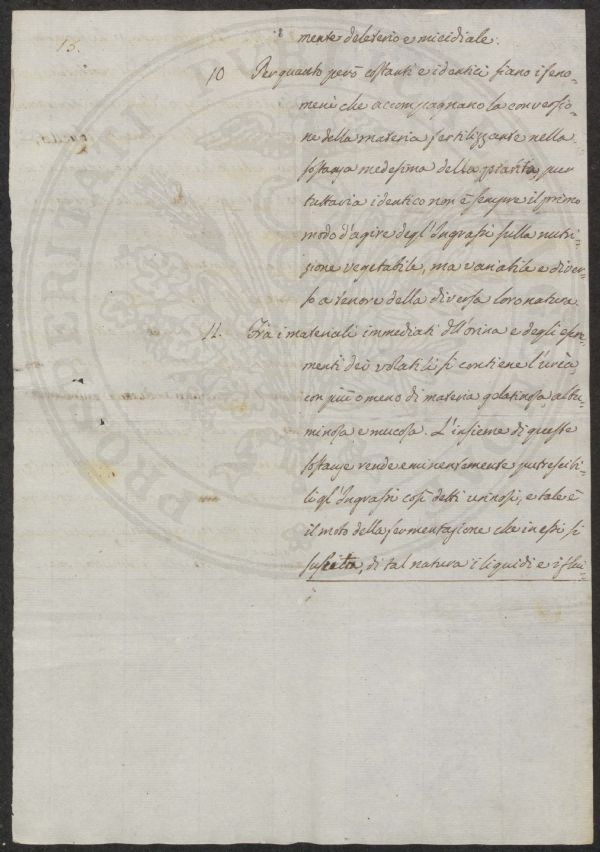 13.
mente deleterio e micidiale.
10 Per quanto però costanti e identici siano i feno-
meni che accompagnano la conversio-
ne della materia fertilizzante nella
sostanza medesima della pianta, pur
tuttavia identico non è sempre il primo
modo d'agire degl'Ingrassi sulla nutri-
zione vegetabile, ma variabile e diver-
so a tenore della diversa loro natura.
11. Frà i materiali immediati dll'orina e degli escre-
menti dei volatili si contiene l'urèa,
con più o meno di materia gelatinosa, albu-
minosa e mucosa. L'insieme di queste
sostanze rende eminentemente putrescibi-
li gl'Ingrassi così detti urinosi, e tale è
il moto della fermentazione che in essi si
suscita, di tal natura i liquidi e i flui-
PROSPERITATI PUBLICAE